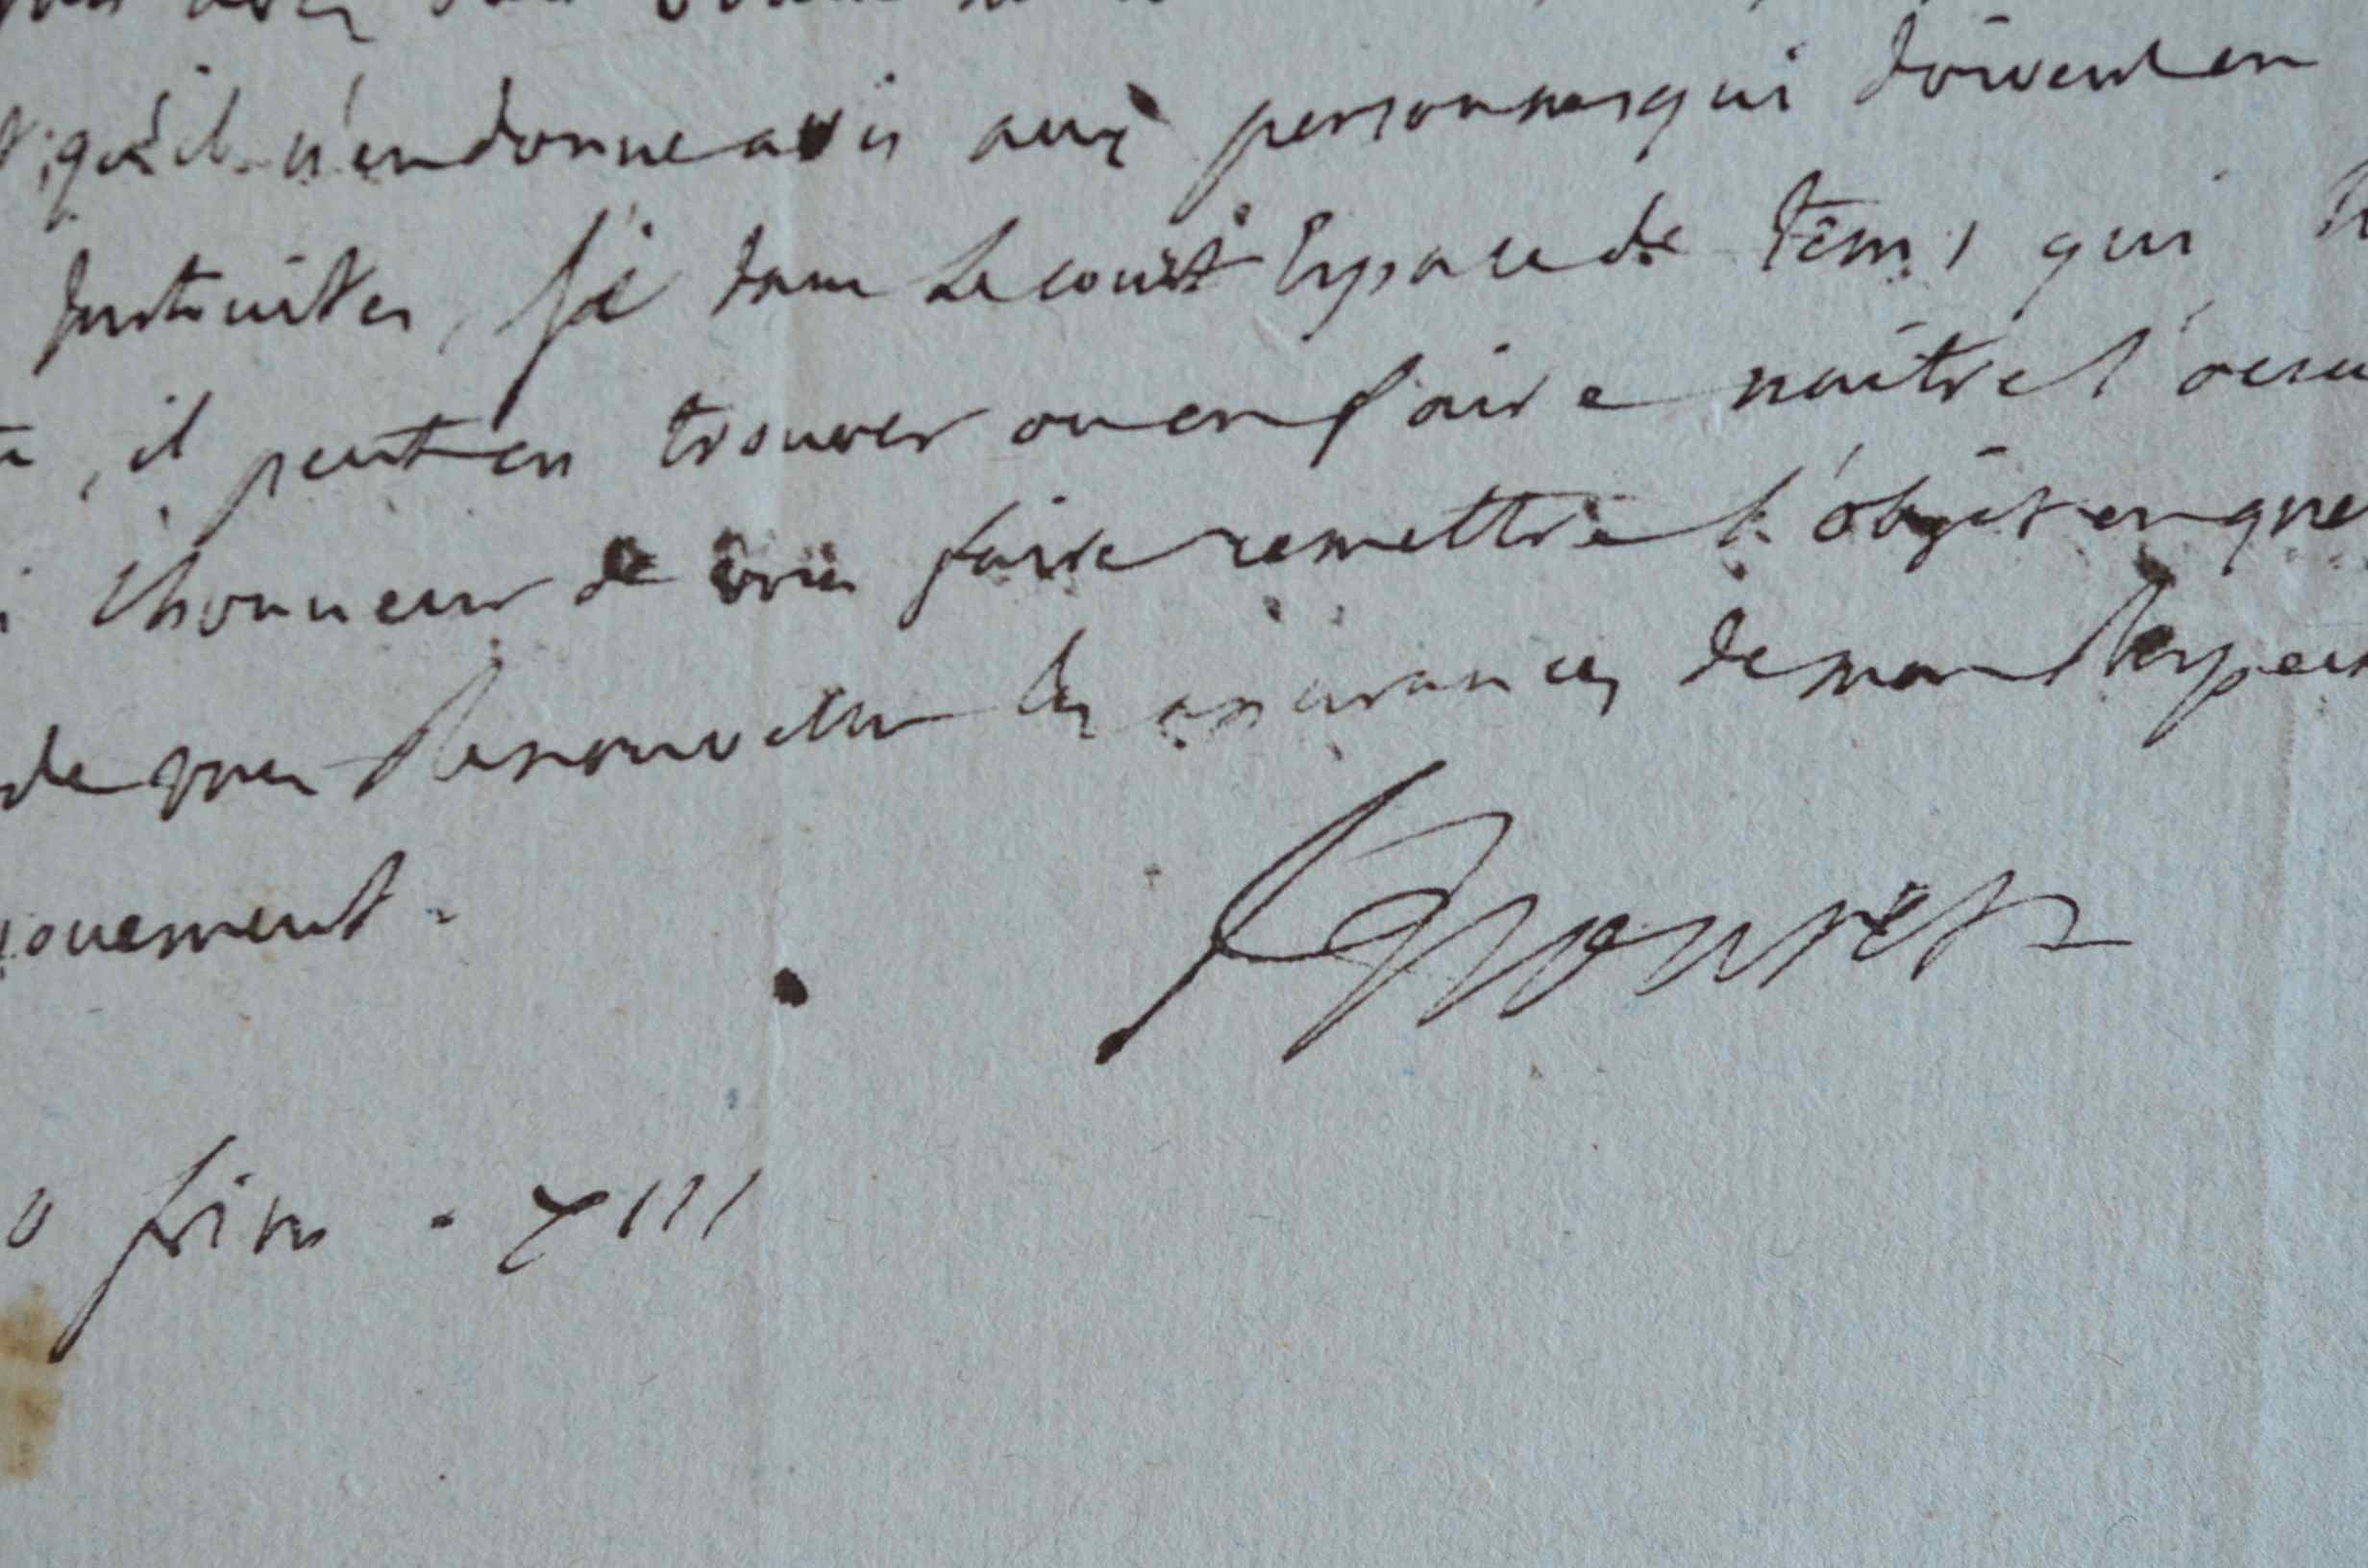 qu'il n'en donne avis aux personnes qui doivent en
instruites, si dans le court Espace de tems qui
, il peut en trouver ou en faire naître l'
l'honneur de vous faire remettre l'objet en que
de vous Renouveller les assurances de mon Respect
ouement.
frim. XIII